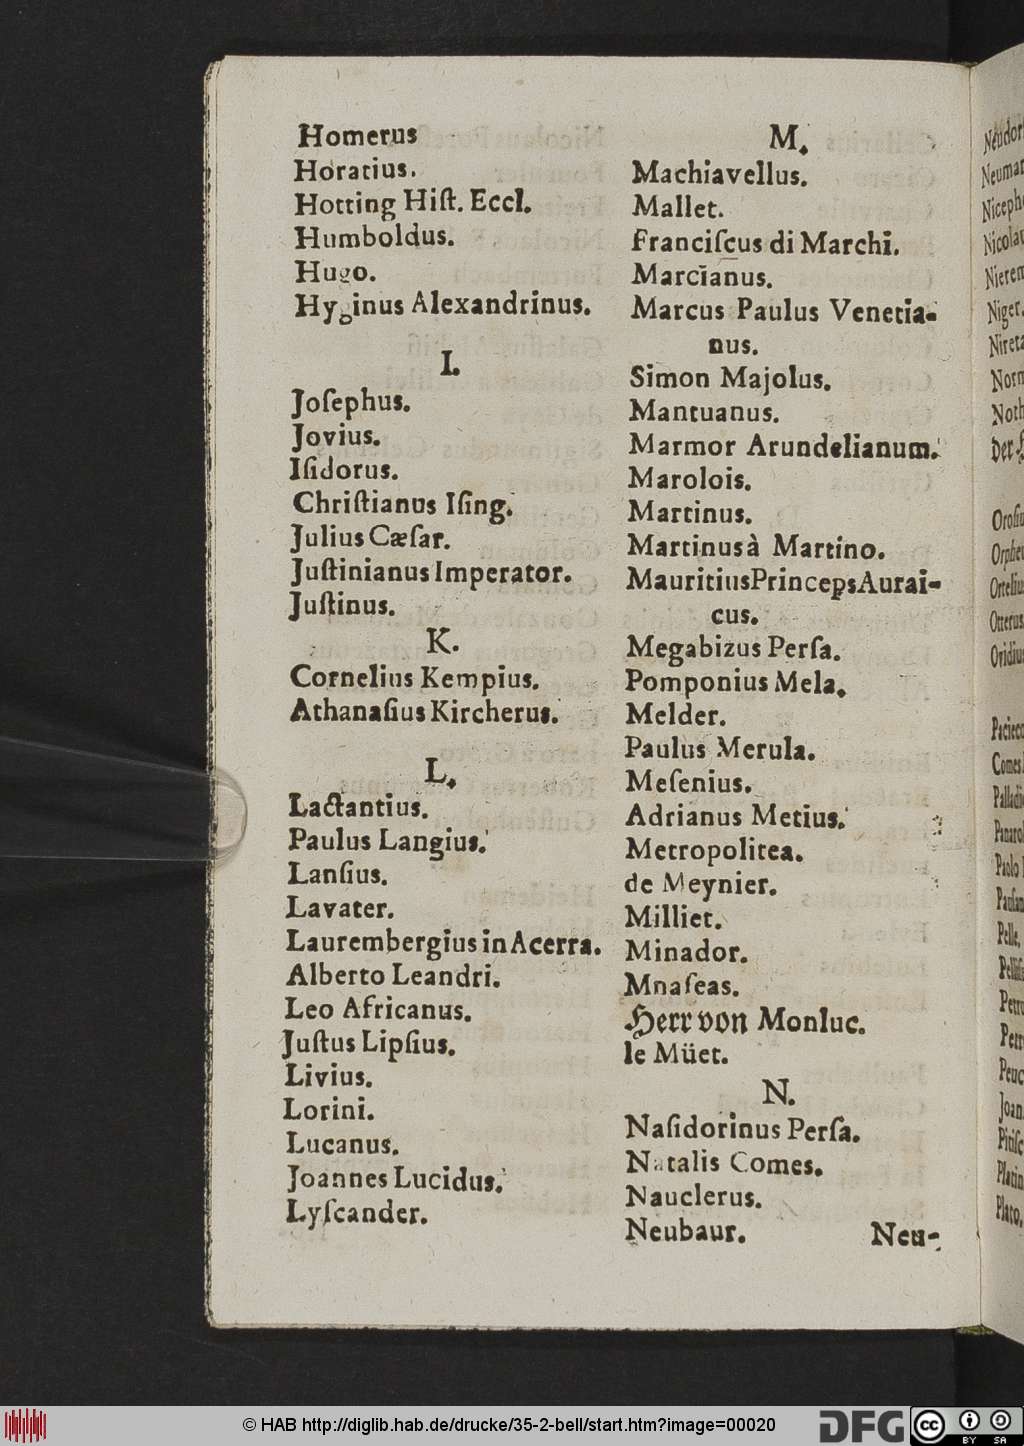 Homerus
Horatius.
Hotting Hiſt. Eccl.
Humboldus.
Hugo.
Hyginus Alexandrinus.
I.
Joſephus.
Jovius.
Iſidorus.
Chriſtianus Iſing.
Julius Cæſar.
Juſtinianus Imperator.
Juſtinus.
K.
Cornelius Kempius.
Athanaſius Kircherus.
L.
Lactantius.
Paulus Langius.
Lanſius.
Lavater.
Laurembergius in Acerra.
Alberto Leandri.
Leo Africanus.
Juſtus Lipſius.
Livius.
Lorini.
Lucanus.
Joannes Lucidus.
Lyſcander.
M.
Machiavellus.
Mallet.
Franciſcus di Marchi.
Marcianus.
Marcus Paulus Venetia-
nus.
Simon Majolus.
Mantuanus.
Marmor Arundelianum.
Marolois.
Martinus.
Martinus à Martino.
Mauritius Princeps Aurai-
cus.
Megabizus Perſa.
Pomponius Mela.
Melder.
Paulus Merula.
Meſenius.
Adrianus Metius.
Metropolitea.
de Meynier.
Milliet.
Minador.
Mnaſeas.
Herr von Monluc.
le Müet.
N.
Naſidorinus Perſa.
Natalis Comes.
Nauclerus.
Neubaur.
Neu-
© HAB http://diglib.hab.de/drucke/35-2-bell/start.htm?image=00020
DFG
cc BY SA